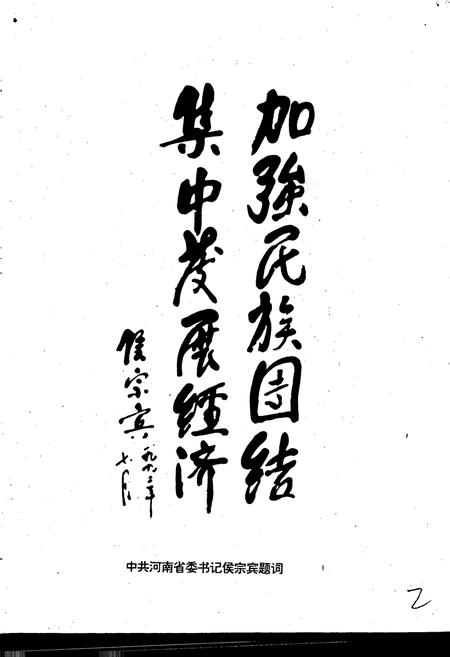 加強民族团结
集中发展经济
侯宗宾
一九九二年
七月
中共河南省委书记侯宗宾题词
2